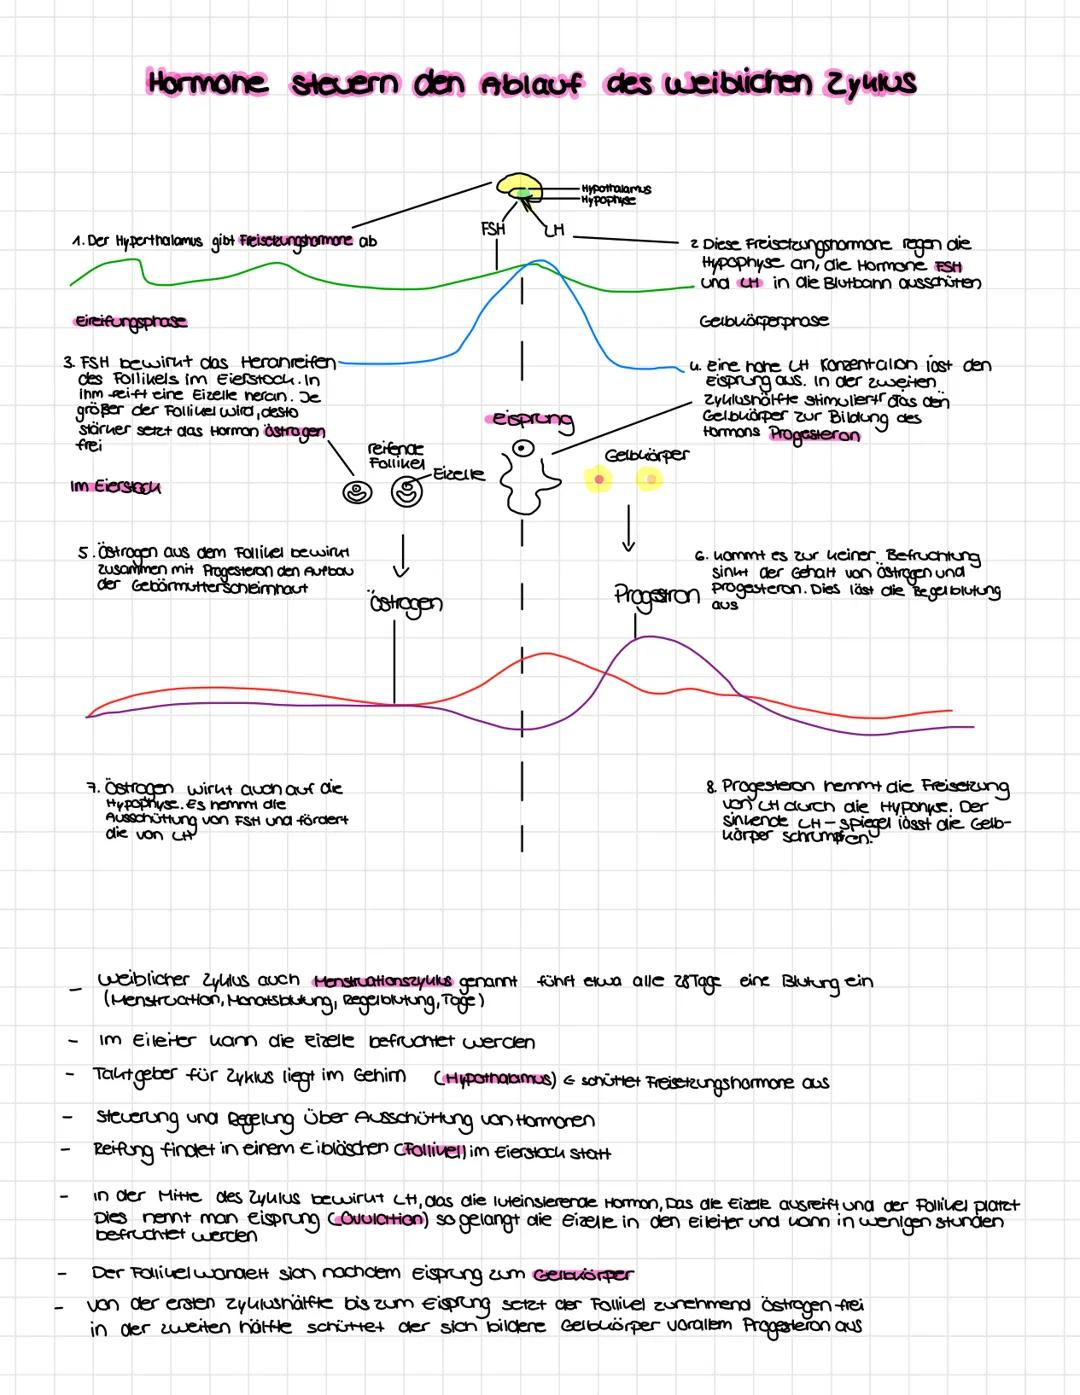 Hormone steuern den Ablauf des weiblichen Zyklus
Hypothalamus
Hypophyse
FSH
LH
1. Der Hyperthalamus gibt Freisetzungshormone ab
2 Diese Freisetzungshormone regen die
Hypophyse an, die Hormone FSH
und LH in die Blutbahn ausschütten
Eireifungsphase
Gelbkörperphase
3. FSH bewirkt das Heranreifen
des Follikels im Eierstock. In
ihm reift eine Eizelle heran. Je
größer der Follikel wird, desto
stärker setzt das Hormon östrogen
frei
4. Eine hohe LH Konzentation löst den
Eisprung aus. In der zweiten
Zyklushälfte stimuliert das den
Gelbkörper zur Bildung des
Hormons Progesteron
Eisprung
reifende
Follikel
Eizelle
Gelbkörper
Im Eierstock
5. Östrogen aus dem Follikel bewirkt
zusammen mit Progesteron den Aufbau
der Gebärmutterschleimhaut
Östrogen
6. Kommt es zur keiner Befruchtung
sinkt der Gehalt von Östrogen und
Progesteron. Dies löst die Regelblutung
aus
Progestron
7. Östrogen wirkt auch auf die
Hypophyse. Es hemmt die
Ausschüttung von FSH und fördert
die von LH
8. Progesteron hemmt die Freisetzung
von LH durch die Hyponyse. Der
sinkende LH-Spiegel lässt die Gelb-
körper schrumpfen.
- Weiblicher Zyklus auch Menstruationszyklus genannt führt etwa alle 28 Tage eine Blutung ein
(Menstruation, Monatsblutung, Regelblutung, Tage)
- Im Eileiter kann die Eizelle befruchtet werden
- Taktgeber für Zyklus liegt im Gehirn (Hypothalamus) ← schüttet Freisetzungshormone aus
- Steuerung und Regelung über Ausschüttung von Hormonen
- Reifung findet in einem Eibläschen (Follikel) im Eierstock statt
- in der Mitte des Zyklus bewirkt LH, das die luteinsierende Hormon, Das die Eizelle ausreift und der Follikel platzt
Dies nennt man Eisprung (Ovulation) so gelangt die Eizelle in den Eileiter und kann in wenigen Stunden
befruchtet werden
- Der Follikel wandelt sich nachdem Eisprung zum Gelbkörper
- von der ersten Zyklushälfte bis zum Eisprung setzt der Follikel zunehmend Östrogen frei
in der zweiten hälfte schüttet der sich bildere Gelbkörper vorallem Progesteron aus